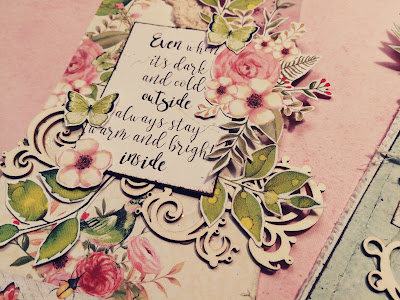 Even when
it's dark
and cold
outside
always stay
warm and bright
inside